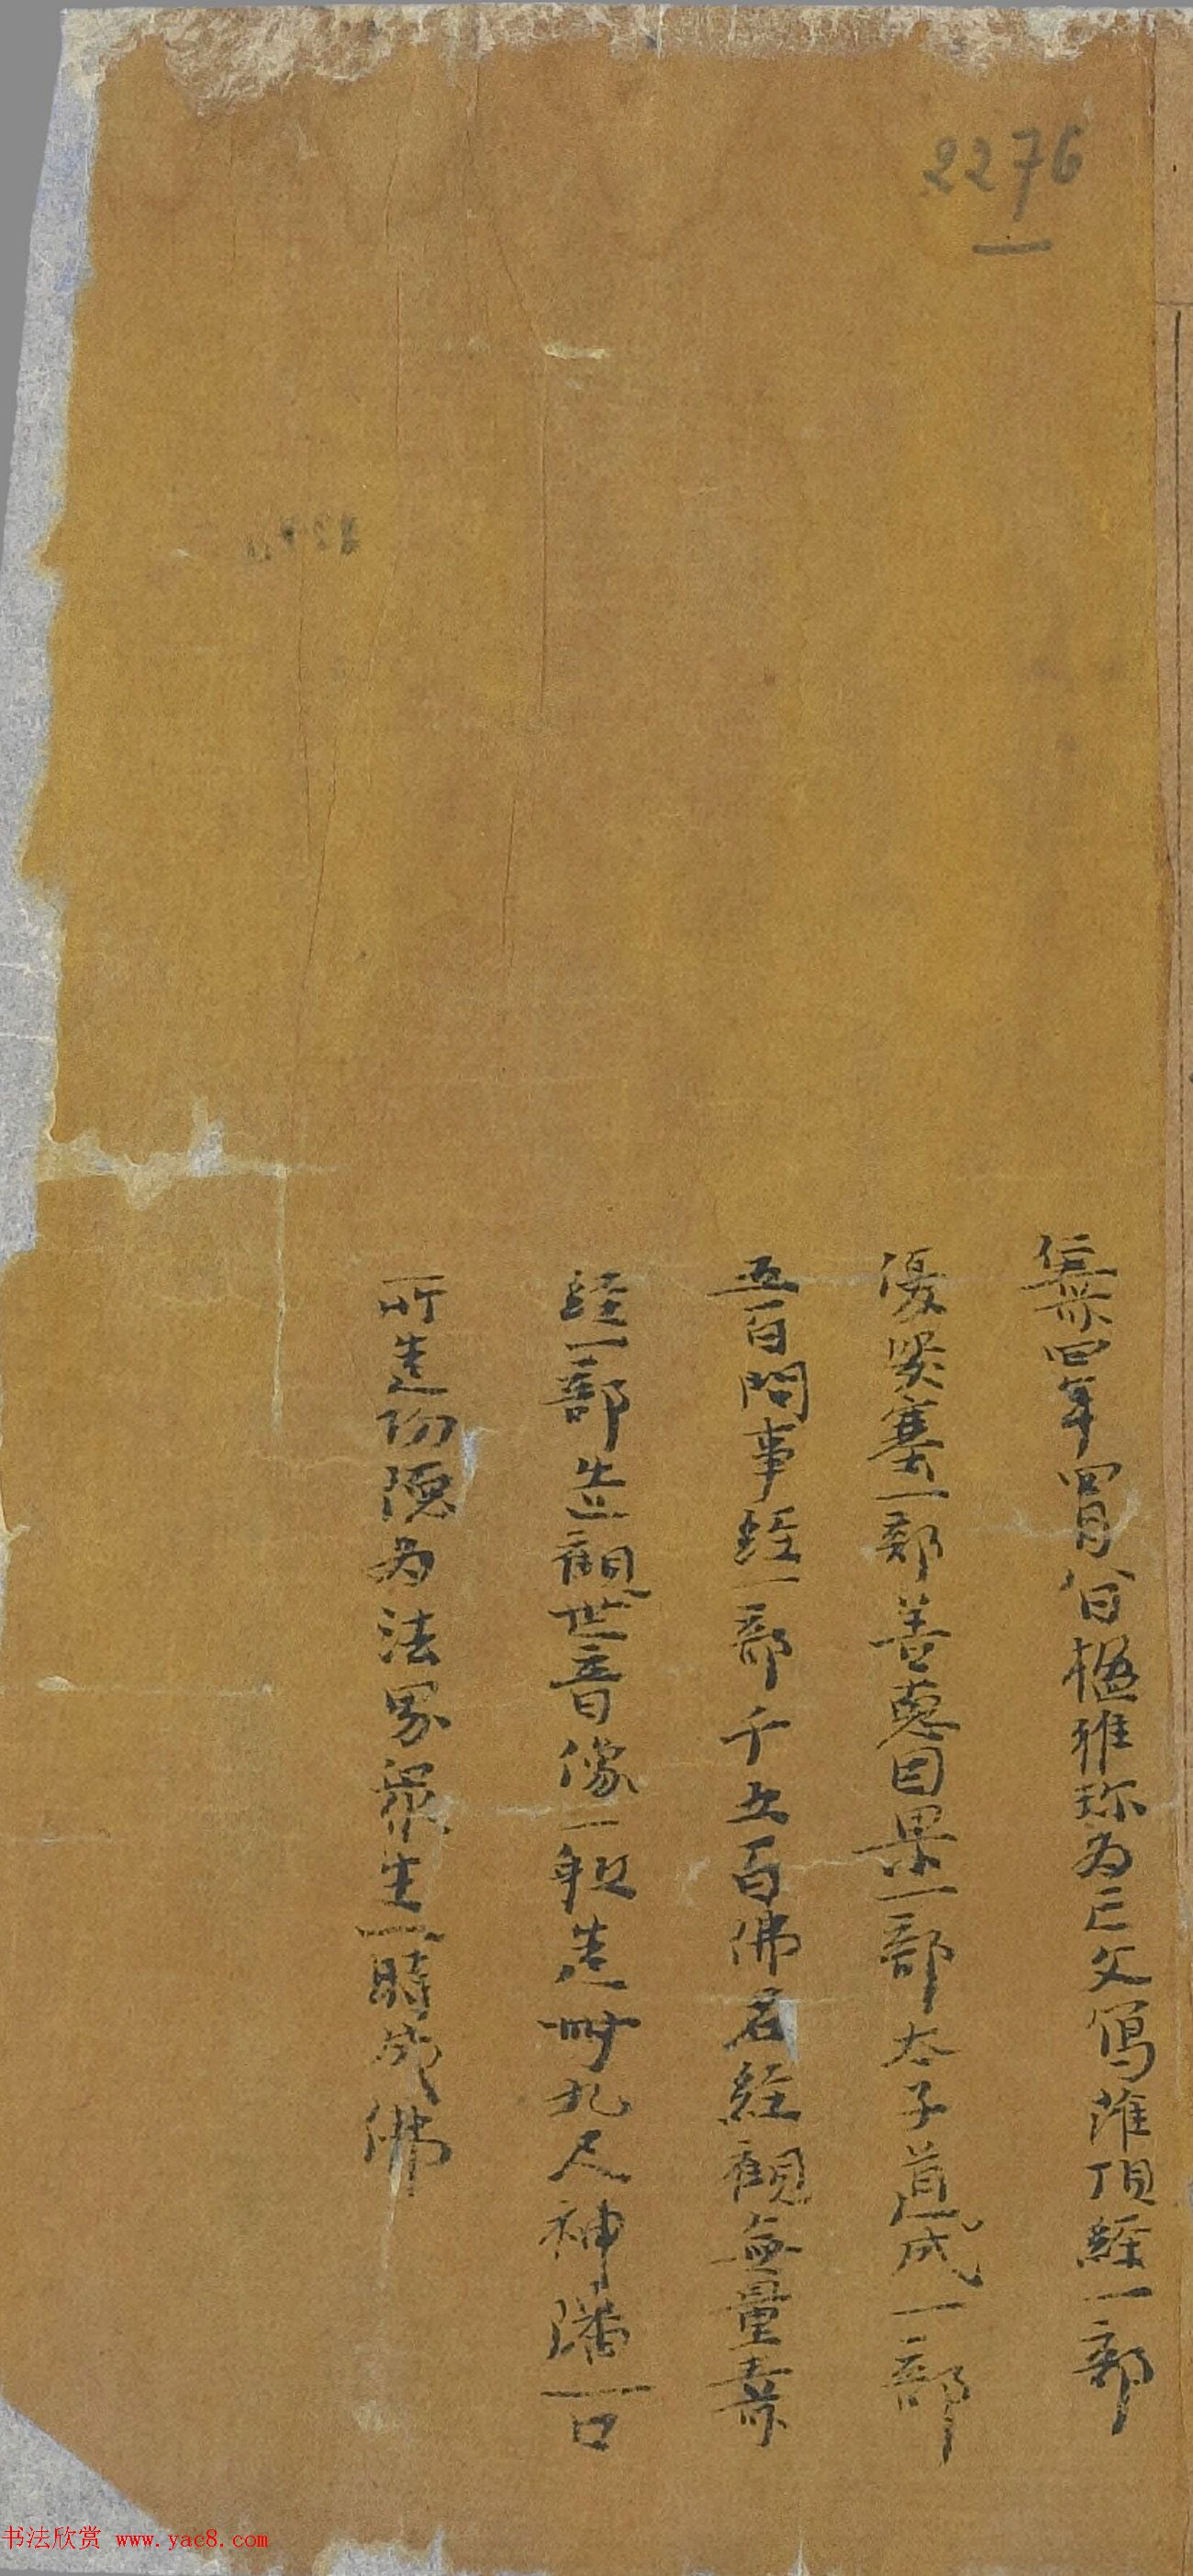 2276
仁壽四年四月八日楹雅珍為亡父寫灌頂經一部
優婆塞一部善惡因果一部太子道成一部
五百問事經一部千五百佛名經觀無量壽
經一部造觀世音像一軀造卌九尺神旛一口
所造功德為法界衆生一時成佛
书法欣赏 www.yac8.com